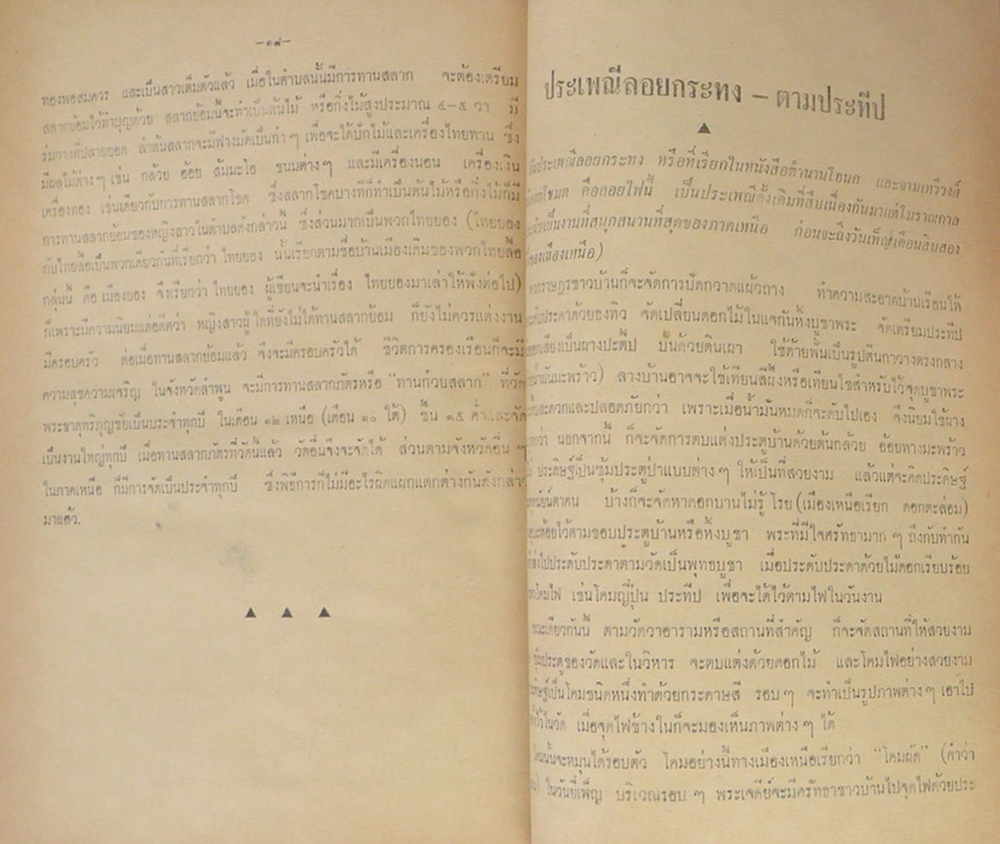 —๑๘—
ทองพอสมควร และเป็นสาวเต็มตัวแล้ว เมื่อในตำบลนั้นมีการทานสลาก จะต้องเตรียม
สลากย้อมไว้ทำบุญด้วย สลากย้อมนี้จะทำเป็นต้นไม้ หรือกิ่งไม้สูงประมาณ ๔–๕ วา มี
ร่มกางที่ปลายยอด ลำต้นสลากจะมีฟางมัดเป็นกำ ๆ เพื่อจะได้ปักไม้และเครื่องไทยทาน ซึ่ง
มีผลไม้ต่างๆ เช่น กล้วย อ้อย ส้มมะโอ ขนมต่างๆ และมีเครื่องนอน เครื่องเงิน
เครื่องทอง เช่นเดียวกับการทานสลากโชค ซึ่งสลากโชคบางทีก็ทำเป็นต้นไม้หรือกิ่งไม้ก็มี
การทานสลากย้อมของหญิงสาวในตำบลดังกล่าวนี้ ซึ่งส่วนมากเป็นพวกไทยยอง (ไทยยอง
กับไทยลื้อเป็นพวกเดียวกันที่เรียกว่า ไทยยอง นั้นเรียกตามชื่อบ้านเมืองเดิมของพวกไทยลื้อ
กลุ่มนี้ คือ เมืองยอง จึงเรียกว่า ไทยยอง ผู้เขียนจะนำเรื่อง ไทยยองมาเล่าให้ฟังต่อไป)
ก็เพราะมีความนิยมแต่อดีตว่า หญิงสาวผู้ใดที่ยังไม่ได้ทานสลากย้อม ก็ยังไม่ควรแต่งงาน
มีครอบครัว ต่อเมื่อทานสลากย้อมแล้ว จึงจะมีครอบครัวได้ ชีวิตการครองเรือนก็จะมี
ความสุขความเจริญ ในจังหวัดลำพูน จะมีการทานสลากภัตรหรือ "ทานก๋วยสลาก" ที่วัด
พระธาตุหริภุญชัยเป็นประจำทุกปี ในเดือน ๑๒ เหนือ (เดือน ๑๐ ใต้) ขึ้น ๑๕ ค่ำและจัด
เป็นงานใหญ่ทุกปี เมื่อทานสลากภัตรที่วัดนี้แล้ว วัดอื่นจึงจะจัดได้ ส่วนตามจังหวัดอื่น ๆ
ในภาคเหนือ ก็มีการจัดเป็นประจำทุกปี ซึ่งพิธีการก็ไม่มีอะไรผิดแผกแตกต่างกันดังกล่าว
มาแล้ว.
▲ ▲ ▲
ประเพณีลอยกระทง – ตามประทีป
▲
ประเพณีลอยกระทง หรือที่เรียกในหนังสือตำนานโยนก และจามเทวีวงศ์
คือลอยไฟนี้ เป็นประเพณีดั้งเดิมที่สืบเนื่องกันมาแต่โบราณกาล
เป็นงานที่สนุกสนานที่สุดของภาคเหนือ ก่อนจะถึงวันเพ็ญเดือนสิบสอง
ของเมืองเหนือ)
ราษฎรชาวบ้านก็จะจัดการปัดกวาดแผ้วถาง ทำความสะอาดบ้านเรือนให้
ประดาด้วยธงทิว จัดเปลี่ยนดอกไม้ในแจกันหิ้งบูชาพระ จัดเตรียมประทีป
เป็นผางปะตีป ปั้นด้วยดินเผา ใช้ด้ายพันเป็นรูปตีนกาวางตรงกลาง
น้ำมันมะพร้าว) ลางบ้านอาจจะใช้เทียนสีผึ้งหรือเทียนไขสำหรับไว้จุดบูชาพระ
สะดวกและปลอดภัยกว่า เพราะเมื่อน้ำมันหมดก็จะดับไปเอง จึงนิยมใช้ผาง
กว่า นอกจากนี้ ก็จะจัดการตบแต่งประตูบ้านด้วยต้นกล้วย อ้อยทางมะพร้าว
ประดิษฐ์เป็นซุ้มประตูป่าแบบต่างๆ ให้เป็นที่สวยงาม แล้วแต่จะคิดประดิษฐ์
บ้างก็จะจัดหาดอกบานไม่รู้โรย (เมืองเหนือเรียก ดอกตะล่อม)
ห้อยไว้ตามขอบประตูบ้านหรือหิ้งบูชา พระที่มีใจศรัทธามาก ๆ ถึงกับทำกัน
ไปประดับประดาตามวัดเป็นพุทธบูชา เมื่อประดับประดาด้วยไม้ดอกเรียบร้อย
โคมไฟ เช่นโคมญี่ปุ่น ประทีป เพื่อจะได้ไว้ตามไฟในวันงาน
ขณะเดียวกันนี้ ตามวัดวาอารามหรือสถานที่สำคัญ ก็จะจัดสถานที่ให้สวยงาม
ซุ้มประตูของวัดและในวิหาร จะตบแต่งด้วยดอกไม้ และโคมไฟอย่างสวยงาม
เป็นโคมชนิดหนึ่งทำด้วยกระดาษสี รอบๆ จะทำเป็นรูปภาพต่างๆ เอาไป
ไว้ในวัด เมื่อจุดไฟข้างในก็จะมองเห็นภาพต่าง ๆ ได้
โคมนั้นจะหมุนได้รอบตัว โคมอย่างนี้ทางเมืองเหนือเรียกว่า "โคมผัด" (คำว่า
ในวันยี่เพ็ญ บริเวณรอบ ๆ พระเจดีย์จะมีศรัทธาชาวบ้านไปจุดไฟด้วยประ